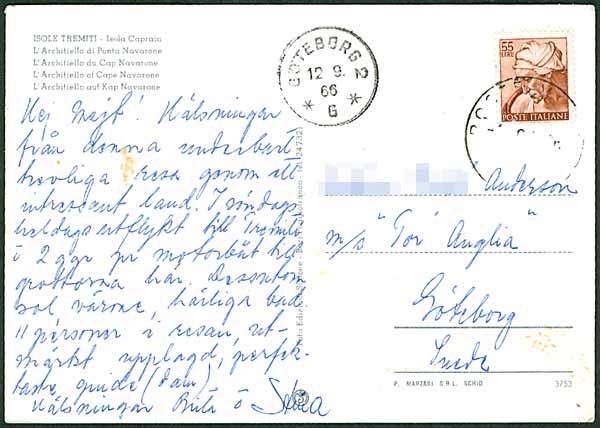 ISOLE TREMITI - Isola Capraia
L'Architiello di Punta Navarone
L'Architiello du Cap Navarone
L'Architiello of Cape Navarone
L'Architiello auf Kap Navarone
GÖTEBORG 2
12 9.
66
G
55
LIRE
POSTE ITALIANE
Hej Majt! Hälsningar
från denna underbart
trevliga resa genom ett
intressant land. I söndags
heldagsutflykt till Tremiti
ö 2 ggr pr motorbåt till
grottorna här. Dessutom
sol värme, härliga bad
11 personer i resan, ut-
märkt upplagd, perfek-
taste guide (dam).
Hälsningar
Anderson
m/s "Tor Anglia"
Göteborg
Suede
P. MARZARI S.R.L. SCHIO
3753